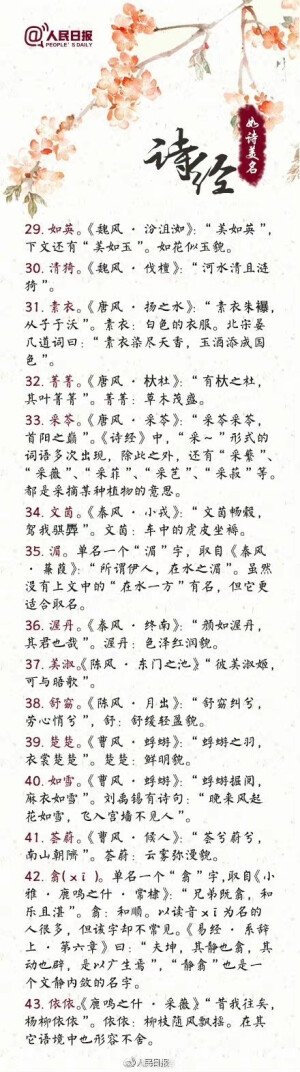 @人民日报
PEOPLE'S DAILY
诗经
如诗美名
29. 如英。《魏风·汾沮洳》：“美如英”，
下文还有“美如玉”。如花似玉貌。
30. 清猗。《魏风·伐檀》：“河水清且涟
猗”。
31. 素衣。《唐风·扬之水》：“素衣朱襮，
从子于沃”。素衣：白色的衣服。北宋晏
几道词曰：“素衣染尽天香，玉酒添成国
色”。
32. 菁菁。《唐风·杕杜》：“有杕之杜，
其叶菁菁”。菁菁：草木茂盛。
33. 采苓。《唐风·采苓》：“采苓采苓，
首阳之巅”。《诗经》中，“采~”形式的
词语多次出现，除此之外，还有“采蘩”、
“采薇”、“采菲”、“采芑”、“采菽”等。
都是采摘某种植物的意思。
34. 文茵。《秦风·小戎》：“文茵畅毂，
驾我骐馵”。文茵：车中的虎皮坐褥。
35. 湄。单名一个“湄”字，取自《秦风
·蒹葭》：“所谓伊人，在水之湄”。虽然
没有上文中的“在水一方”有名，但它更
适合取名。
36. 渥丹。《秦风·终南》：“颜如渥丹，
其君也哉”。渥丹：色泽红润貌。
37. 美淑。《陈风·东门之池》“彼美淑姬，
可与晤歌”。
38. 舒窈。《陈风·月出》：“舒窈纠兮，
劳心悄兮”，舒：舒缓轻盈貌。
39. 楚楚。《曹风·蜉蝣》：“蜉蝣之羽，
衣裳楚楚”。楚楚：鲜明貌。
40. 如雪。《曹风·蜉蝣》：“蜉蝣掘阅，
麻衣如雪”。刘禹锡有诗句：“晚来风起
花如雪，飞入宫墙不见人”。
41. 荟蔚。《曹风·候人》：“荟兮蔚兮，
南山朝隮”。荟蔚：云雾弥漫貌。
42. 翕(xī)。单名一个“翕”字，取自《小
雅·鹿鸣之什·常棣》：“兄弟既翕，和
乐且湛”。翕：和顺。以读音xī为名的
人很多，但该字却不常见。《易经·系辞
上·第六章》曰：“夫坤，其静也翕，其
动也辟，是以广生焉”，“静翕”也是一
个文静内敛的名字。
43. 依依。《鹿鸣之什·采薇》“昔我往矣，
杨柳依依”。依依：柳枝随风飘摇。在其
它语境中也形容不舍。
@人民日报